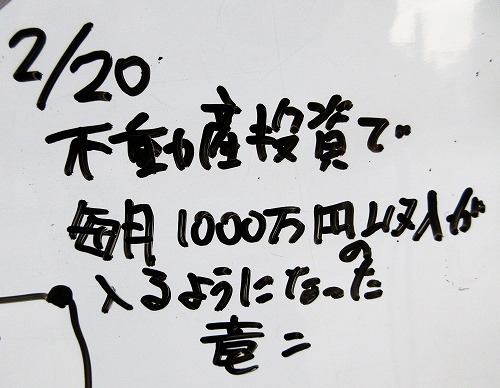 2/20
不動産投資で
毎月1000万円の収入が
入るようになった
竜二